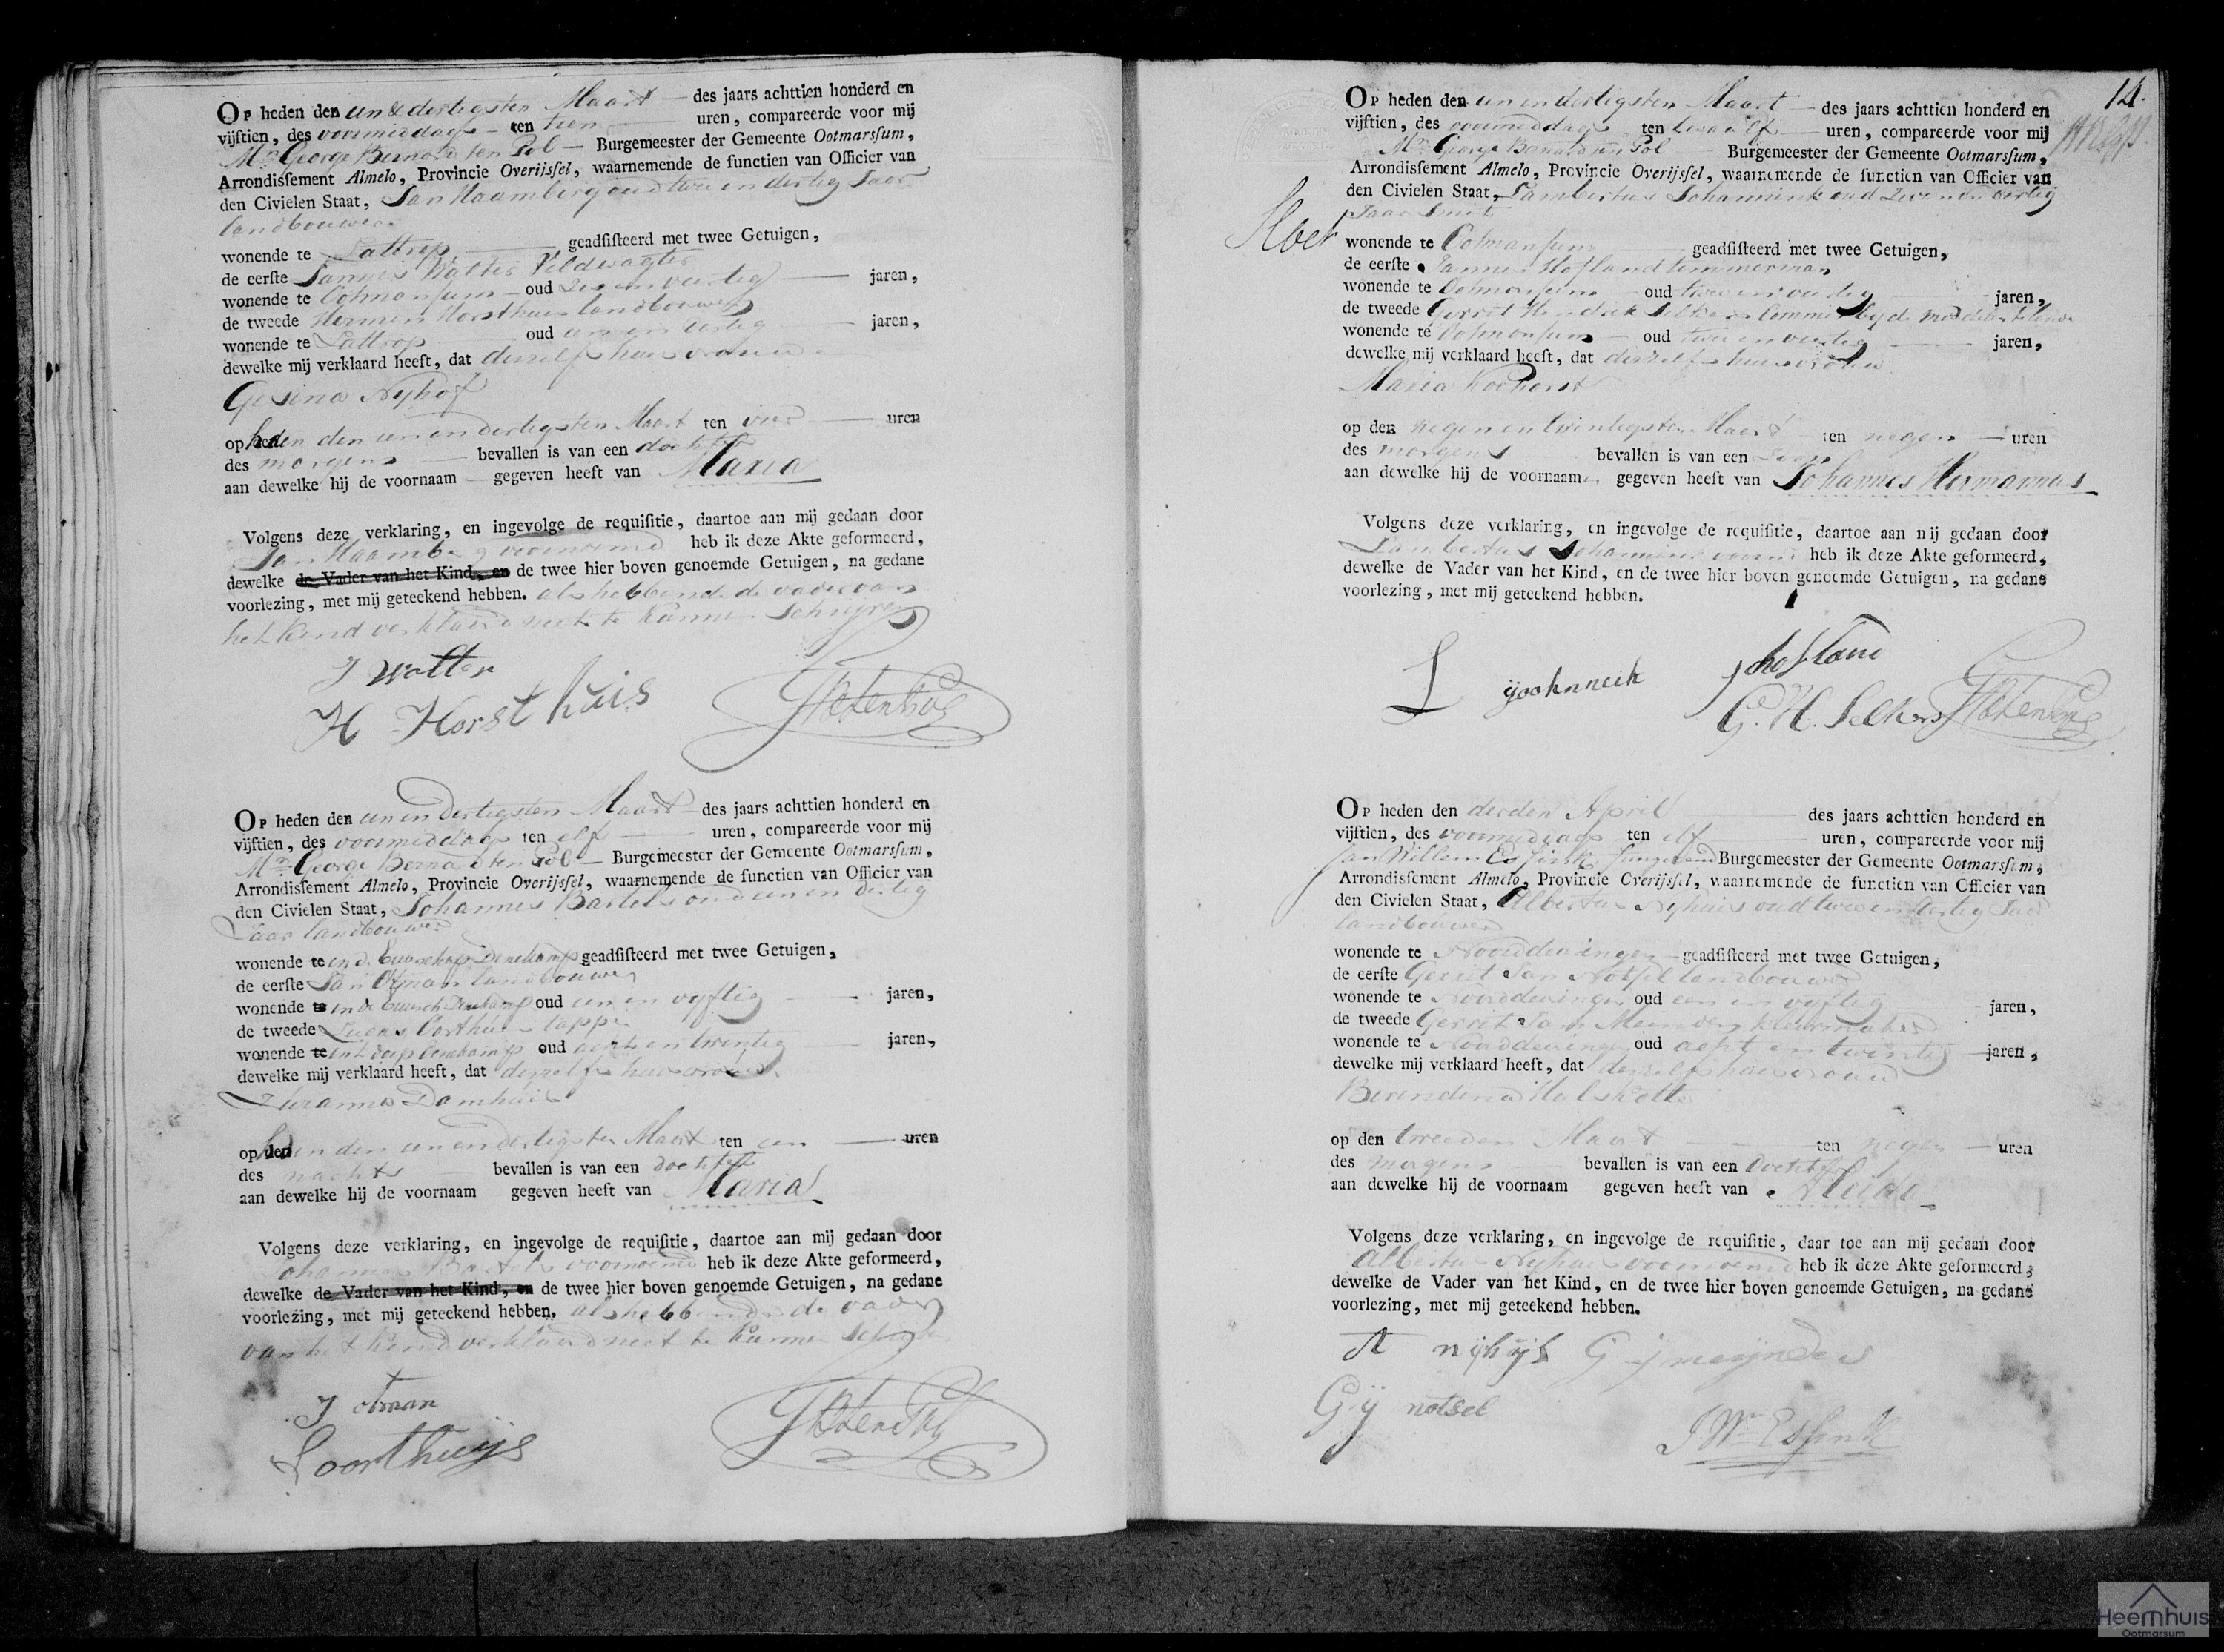 Op heden den een & dertigsten Maart des jaars achttien honderd en
vijftien, des voormiddags ten tien uren, compareerde voor mij
Mr. George Bernard ten Pol Burgemeester der Gemeente Ootmarssum,
Arrondissement Almelo, Provincie Overijssel, waarnemende de functien van Officier van
den Civielen Staat, Jan Haamberg oud twee en dertig Jaar
landbouwer
wonende te Lattrop geadsisteerd met twee Getuigen,
de eerste Jannes Walter Veldwagter
wonende te Ootmarsum oud Zes en veertig jaren,
de tweede Hermen Horsthuis landbouwer
wonende te Lattrop oud een en dertig jaren,
dewelke mij verklaard heeft, dat deszelfs huisvrouwe
Gesina Nyhof
op heden den een en dertigsten Maart ten vier uren
des morgens bevallen is van een dochter
aan dewelke hij de voornaam gegeven heeft van Maria
Volgens deze verklaring, en ingevolge de requisitie, daartoe aan mij gedaan door
Jan Haamberg voornoemd heb ik deze Akte geformeerd,
dewelke de Vader van het Kind, en de twee hier boven genoemde Getuigen, na gedane
voorlezing, met mij geteekend hebben. als hebbende de vader van
het Kind verklaard niet te kunnen Schryven
J Wolter
H Horsthuis GBtenPol
Op heden den een en dertigsten Maart des jaars achttien honderd en
vijftien, des voormiddags ten elf uren, compareerde voor mij
Mr. George Bernard ten Pol Burgemeester der Gemeente Ootmarssum,
Arrondissement Almelo, Provincie Overijssel, waarnemende de functien van Officier van
den Civielen Staat, Johannes Bartels oud een en dertig
Jaar landbouwer
wonende te in d. Buurschap Denekamp geadsisteerd met twee Getuigen,
de eerste Jan Otman landbouwer
wonende te in de Buursch Denekamp oud een en vyftig jaren,
de tweede Lucas Oorthuis tapper
wonende te int dorp Denekamp oud acht en twintig jaren,
dewelke mij verklaard heeft, dat deszelfs huisvrouwe
Zuzanna Damhuis
op heden den een en dertigsten Maart ten een uren
des nachts bevallen is van een dochter
aan dewelke hij de voornaam gegeven heeft van Maria
Volgens deze verklaring, en ingevolge de requisitie, daartoe aan mij gedaan door
Johannes Bartels voornoemd heb ik deze Akte geformeerd,
dewelke de Vader van het Kind, en de twee hier boven genoemde Getuigen, na gedane
voorlezing, met mij geteekend hebben. als hebbende de vader
van het Kind verklaard niet te kunnen Schryven
J otman
L oorthuijs GBtenPol
14.
Op heden den een en dertigsten Maart des jaars achttien honderd en
vijftien, des voormiddags ten twaalf uren, compareerde voor mij
Mr. George Bernard ten Pol Burgemeester der Gemeente Ootmarssum,
Arrondissement Almelo, Provincie Overijssel, waarnemende de functien van Officier van
den Civielen Staat, Lambertus Johannink oud Zeven en dertig
Jaar Smit
wonende te Ootmarsum geadsisteerd met twee Getuigen,
de eerste Jannes Hofland timmerman
wonende te Ootmarsum oud twee en veertig jaren,
de tweede Gerrit Hendrik Selkers Commies by de middelen te lande
wonende te Ootmarsum oud twee en veertig jaren,
dewelke mij verklaard heeft, dat deszelfs huisvrouw
Maria Kockhorst
op den negen en twintigsten Maart ten negen uren
des morgens bevallen is van een Zoon
aan dewelke hij de voornaamen gegeven heeft van Johannes Hermannus
Volgens deze verklaring, en ingevolge de requisitie, daartoe aan mij gedaan door
Lambertus Johannink voorn heb ik deze Akte geformeerd,
dewelke de Vader van het Kind, en de twee hier boven genoemde Getuigen, na gedane
voorlezing, met mij geteekend hebben.
L yoohnneik J hofland
G. H. Selkers GBtenPol
Op heden den derden April des jaars achttien honderd en
vijftien, des voormiddags ten elf uren, compareerde voor mij
Jan Willem Essink fungerend Burgemeester der Gemeente Ootmarssum,
Arrondissement Almelo, Provincie Overijssel, waarnemende de functien van Officier van
den Civielen Staat, Albertus Nyhuis oud twee en dertig Jaar
landbouwer
wonende te Noorddeuringen geadsisteerd met twee Getuigen,
de eerste Gerrit Jan Notsel landbouwer
wonende te Noorddeuringen oud een en vyftig jaren,
de tweede Gerrit Jan Meinders kleermaker
wonende te Noorddeuringen oud acht en twintig jaren,
dewelke mij verklaard heeft, dat deszelfs huisvrouw
Berendina Hulskotte
op den tweeden Maart ten negen uren
des morgens bevallen is van een Dochter
aan dewelke hij de voornaam gegeven heeft van Aleida
Volgens deze verklaring, en ingevolge de requisitie, daar toe aan mij gedaan door
Albertus Nyhuis voornoemd heb ik deze Akte geformeerd,
dewelke de Vader van het Kind, en de twee hier boven genoemde Getuigen, na gedane
voorlezing, met mij geteekend hebben.
A nijhŭjs G y meijnders
G ÿ notsel
J Wm Essink
Heemhuis
Ootmarsum